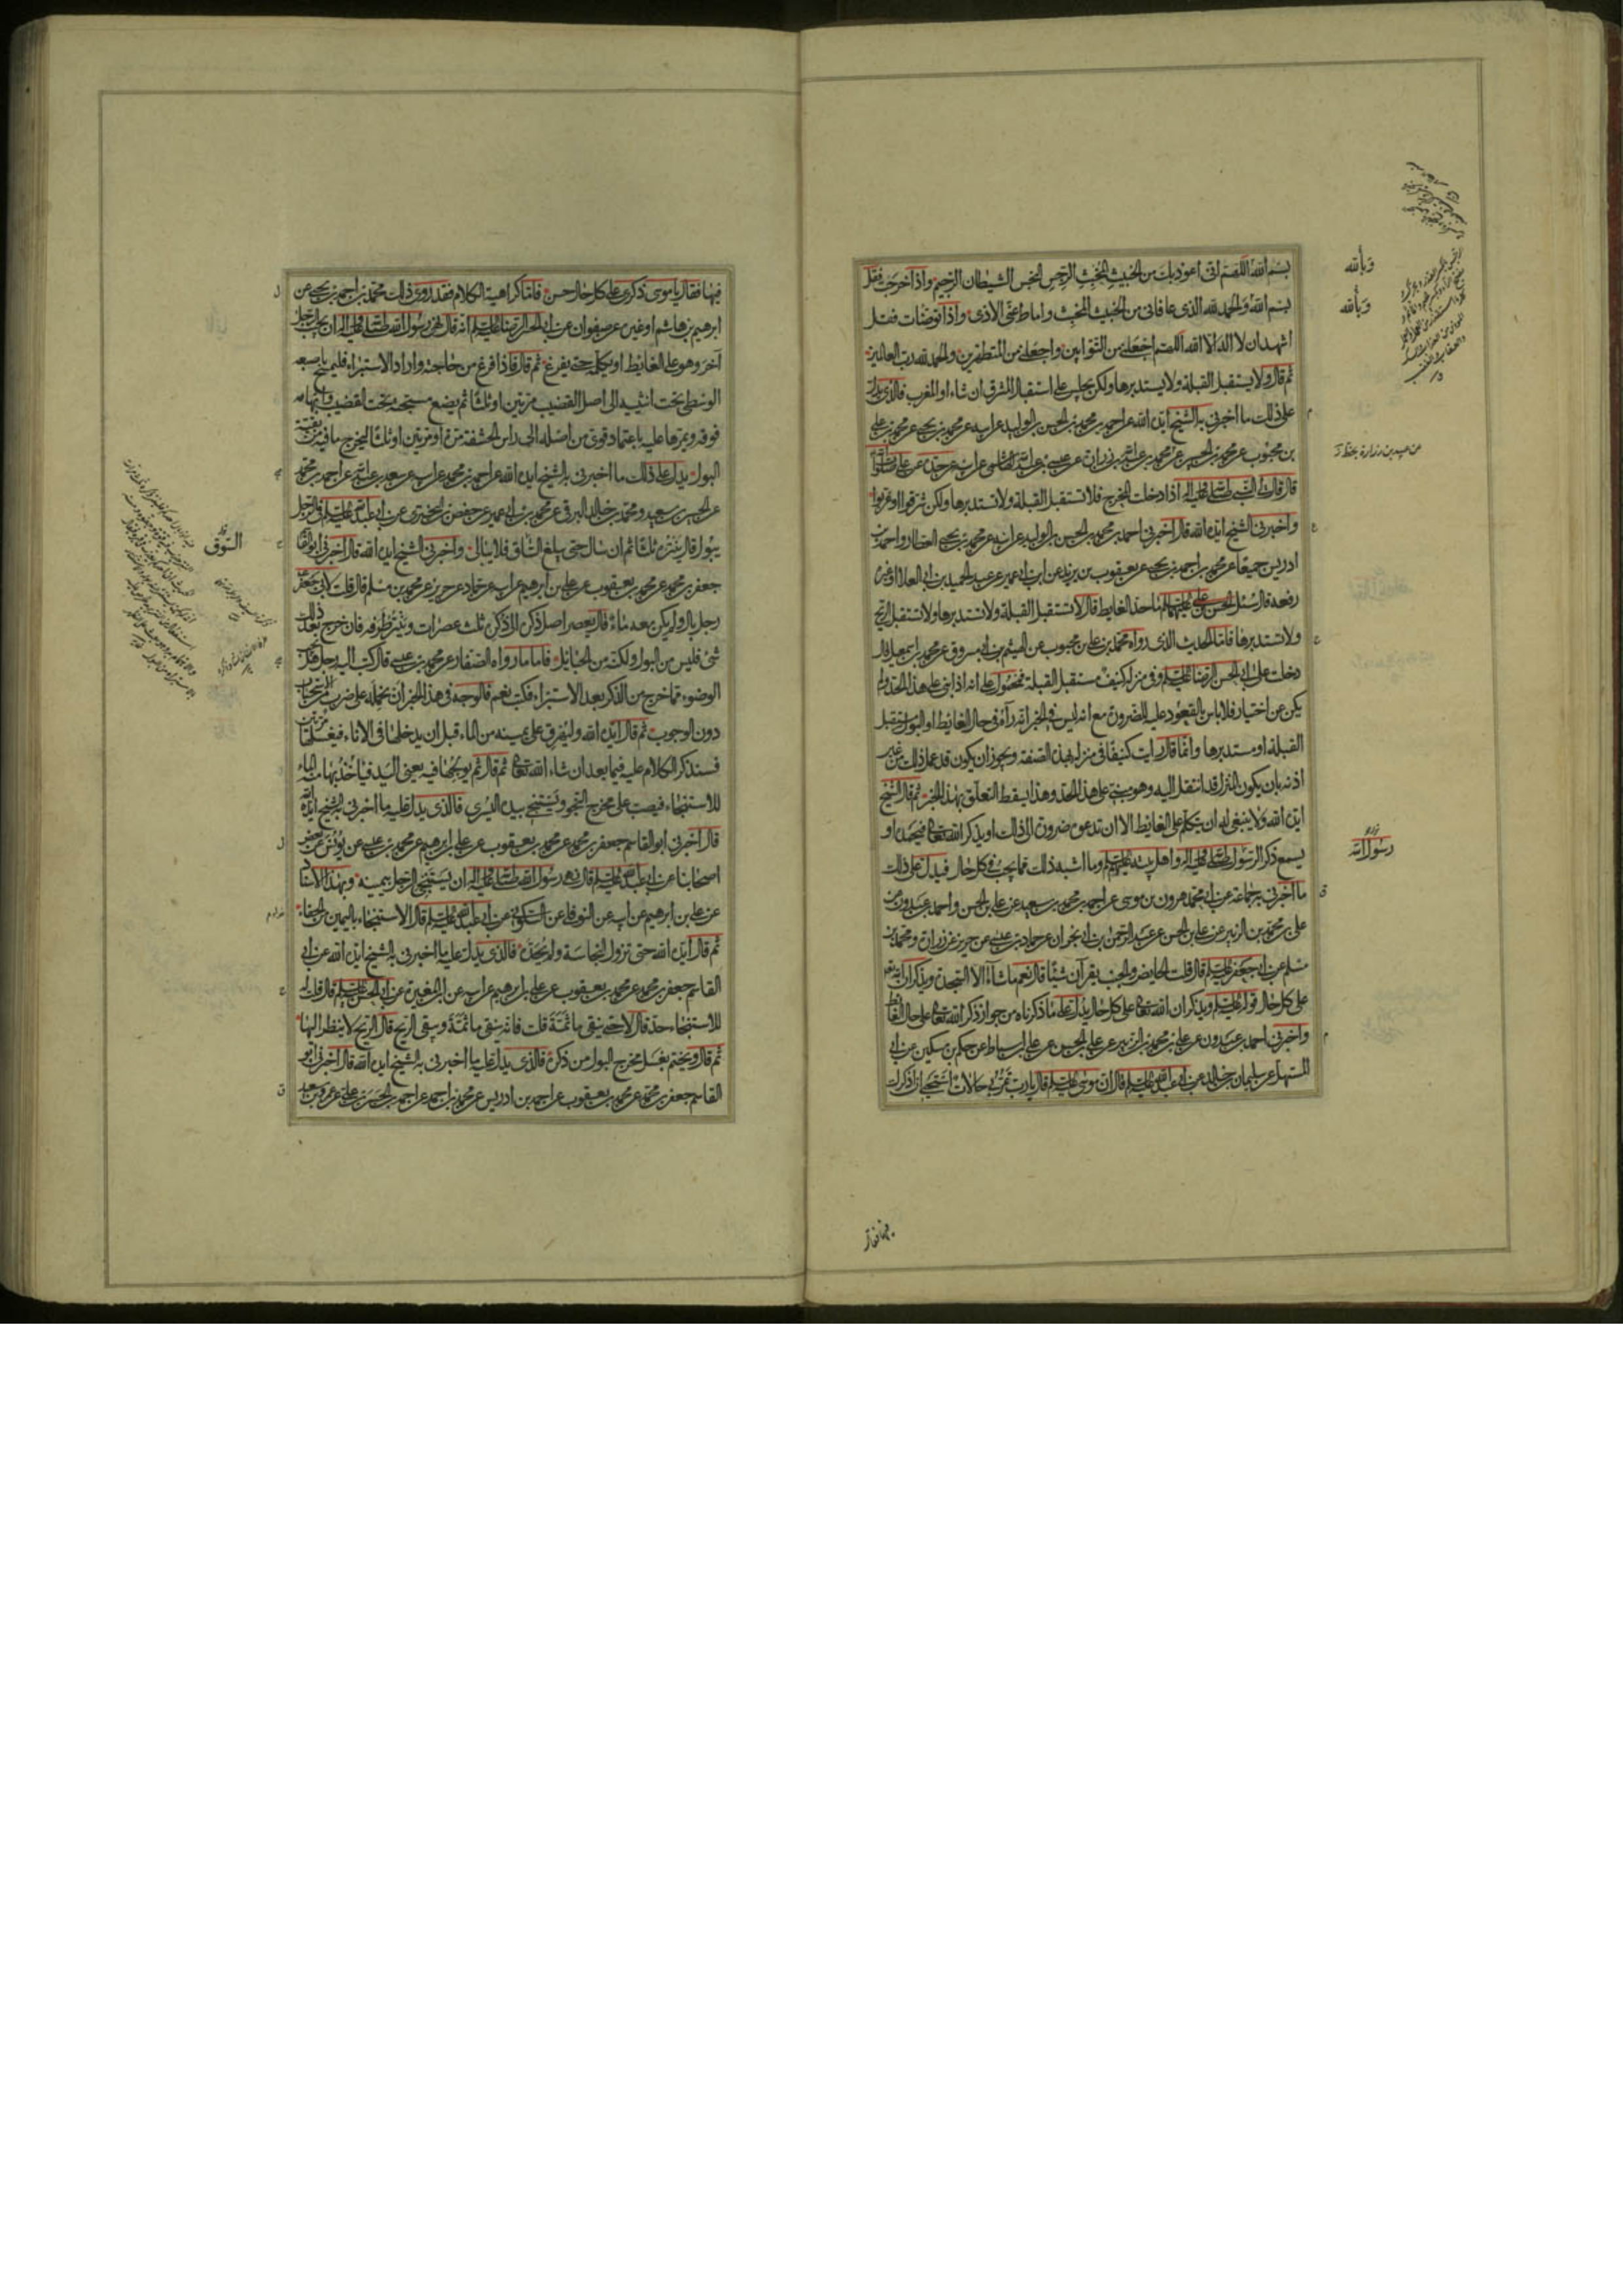 بسم الله اللهم انى اعوذ بك من الخبيث المخبث الرجس النجس الشيطان الرجيم واذا خرجت فقل
بسم الله والحمد لله الذى عافانى من الخبيث المخبث واماط عنى الاذى واذا توضأت فقل
اشهد ان لا اله الا الله اللهم اجعلنى من التوابين واجعلنى من المتطهرين والحمد لله رب العالمين
ثم قال ولا يستقبل القبلة ولا يستدبرها ولكن يجلس على استقبال المشرق ان شاء او المغرب فالذى يدل
على ذلك ما اخبرنى به الشيخ ايده الله عن احمد بن محمد بن الحسن بن الوليد عن ابيه عن محمد بن يحيى عن محمد بن على
بن محبوب عن محمد بن الحسين عن محمد بن عبدالله بن زرارة عن عيسى بن عبدالله الهاشمى عن ابيه عن جده عن على
قال قال النبى صلى الله عليه واله اذا دخلت المخرج فلا تستقبل القبلة ولا تستدبرها ولكن شرقوا او غربوا
واخبرنى الشيخ ايده الله قال اخبرنى احمد بن محمد بن الحسن بن الوليد عن ابيه عن محمد بن يحيى العطار واحمد بن
ادريس جميعا عن محمد بن احمد بن يحيى عن يعقوب بن يزيد عن ابن ابى عمير عن عبد الحميد بن ابى العلا او غيره
رفعه قال سئل الحسن بن على عليهما السلم ما حد الغايط قال لا تستقبل القبلة ولا تستدبرها ولا تستقبل الريح
ولا تستدبرها فاما الحديث الذى رواه محمد بن على بن محبوب عن الهيثم بن ابى مسروق عن محمد بن اسمعيل قال
دخلت على ابى الحسن الرضا عليه السلم وفى منزله كنيف مستقبل القبلة فمحمول على انه اذا بنى على هذا الحد ولم
يكن عن اختيار فلا باس بالقعود عليه للضرورة مع انه ليس فى الخبر انه رآه فى حال الغايط او البول مستقبل
القبلة او مستدبرها وانما قال رايت كنيفا فى منزله بهذه الصفة ويجوز ان يكون قد عمل ذلك من غير
اذنه بان يكون المنزل قد انتقل اليه وهو مبنى على هذا الحد وهذا يسقط التعلق بهذا الخبر ثم قال الشيخ
ايده الله ولا ينبغى له ان يتكلم على الغايط الا ان تدعوه ضرورة الى ذلك او يذكر الله تعالى فيحمده او
يسمع ذكر الرسول صلى الله عليه واله واهل بيته عليهم السلم وما اشبه ذلك مما يجب فى كل حال فيدل على ذلك
ما اخبرنى به جماعة عن ابى محمد هرون بن موسى عن احمد بن محمد بن سعيد عن على بن الحسن واحمد بن عبدون عن
على بن محمد بن الزبير عن على بن الحسن عن عبد الرحمن بن ابى نجران عن حماد بن عيسى عن حريز عن زرارة ومحمد بن
مسلم عن ابى جعفر عليه السلم قال قلت الحايض والجنب يقرآن شيئا قال نعم ما شاءا الا السجدة ويذكران الله تعالى
على كل حال قوله عليه السلم ويذكران الله تعالى على كل حال يدل على ما ذكرناه من جواز ذكر الله تعالى على حال الغائط
واخبرنى احمد بن عبدون عن على بن محمد بن الزبير عن على بن الحسن عن على بن اسباط عن حكم بن مسكين عن ابى
المستهل عن سليمان بن خالد عن ابى عبد الله عليه السلم قال ان موسى عليه السلم قال يا رب تمر بى حالات استحيى ان اذكرك
وبالله
وبالله
عن عبيد بن زرارة بخط
رسول الله
فيها فقال
فيها فقال يا موسى ذكرى على كل حال حسن فاما كراهية الكلام فقد روى ذلك محمد بن احمد بن يحيى عن
ابرهيم بن هاشم او غيره عن صفوان عن ابى الحسن الرضا عليه السلم انه قال نهى رسول الله صلى الله عليه واله ان يجيب الرجل
آخر وهو على الغايط او يكلمه حتى يفرغ ثم قال فاذا فرغ من حاجته واراد الاستبراء فليمسح باصبعه
الوسطى تحت انثييه الى اصل القضيب مرتين او ثلثا ثم يضع مسبحته تحت القضيب وابهامه
فوقه ويمرها عليه باعتماد قوى من اصله الى راس الحشفة مرة او مرتين او ثلثا ليخرج ما فيه من بقية
البول يدل على ذلك ما اخبرنى به الشيخ ايده الله عن احمد بن محمد عن ابيه عن سعد بن عبدالله عن احمد بن محمد
عن الحسين بن سعيد ومحمد بن خالد البرقى عن محمد بن ابى عمير عن حفص بن البخترى عن ابى عبدالله عليه السلم فى الرجل
يبول قال ينتره ثلثا ثم ان سال حتى يبلغ الساق فلا يبالى واخبرنى الشيخ ايده الله قال اخبرنى ابو القاسم
جعفر بن محمد عن محمد بن يعقوب عن على بن ابرهيم عن ابيه عن حماد عن حريز عن محمد بن مسلم قال قلت لابى جعفر
رجل بال ولم يكن معه ماء قال يعصر اصل ذكره الى ذكره ثلث عصرات وينتر طرفه فان خرج بعد ذلك
شئ فليس من البول ولكنه من الحبايل فاما ما رواه الصفار عن محمد بن عيسى قال كتب اليه رجل هل
الوضوء مما خرج من الذكر بعد الاستبراء فكتب نعم فالوجه فى هذا الخبر ان نحمله على ضرب من الاستحباب
دون الوجوب ثم قال ايده الله وليهرق على يمينه من الماء قبل ان يدخلها فى الاناء فيغسلها مرتين
فسنذكر الكلام عليه فيما بعد ان شاء الله تعالى ثم قال ثم يولجها فيه يعنى اليد فياخذ بها منه الماء
للاستنجاء فيصب على مخرج النجو ويستنجى بيده اليسرى فالذى يدل عليه ما اخبرنى به الشيخ ايده الله
قال اخبرنى ابو القاسم جعفر بن محمد عن محمد بن يعقوب عن على بن ابرهيم عن محمد بن عيسى عن يونس عن بعض
اصحابنا عن ابى عبدالله عليه السلم قال نهى رسول الله صلى الله عليه واله ان يستنجى الرجل بيمينه وبهذا الاسناد
عن على بن ابرهيم عن ابيه عن النوفلى عن السكونى عن ابى عبدالله عليه السلم قال الاستنجاء باليمين من الجفاء
ثم قال ايده الله حتى تزول النجاسة ولم يحده فالذى يدل عليه ما اخبرنى به الشيخ ايده الله عن ابى
القاسم جعفر بن محمد عن محمد بن يعقوب عن على بن ابرهيم عن ابيه عن ابن المغيرة عن ابى الحسن عليه السلم قال قلت له
للاستنجاء حد قال لا حتى ينقى ما ثمة قلت فانه ينقى ما ثمة ويبقى الريح قال الريح لا ينظر اليها
ثم قال ويختم بغسل مخرج البول من ذكره فالذى يدل عليه ما اخبرنى به الشيخ ايده الله قال اخبرنى ابو
القاسم جعفر بن محمد عن محمد بن يعقوب عن احمد بن ادريس عن محمد بن احمد عن احمد بن الحسن بن على عن عمرو بن سعيد
السوق